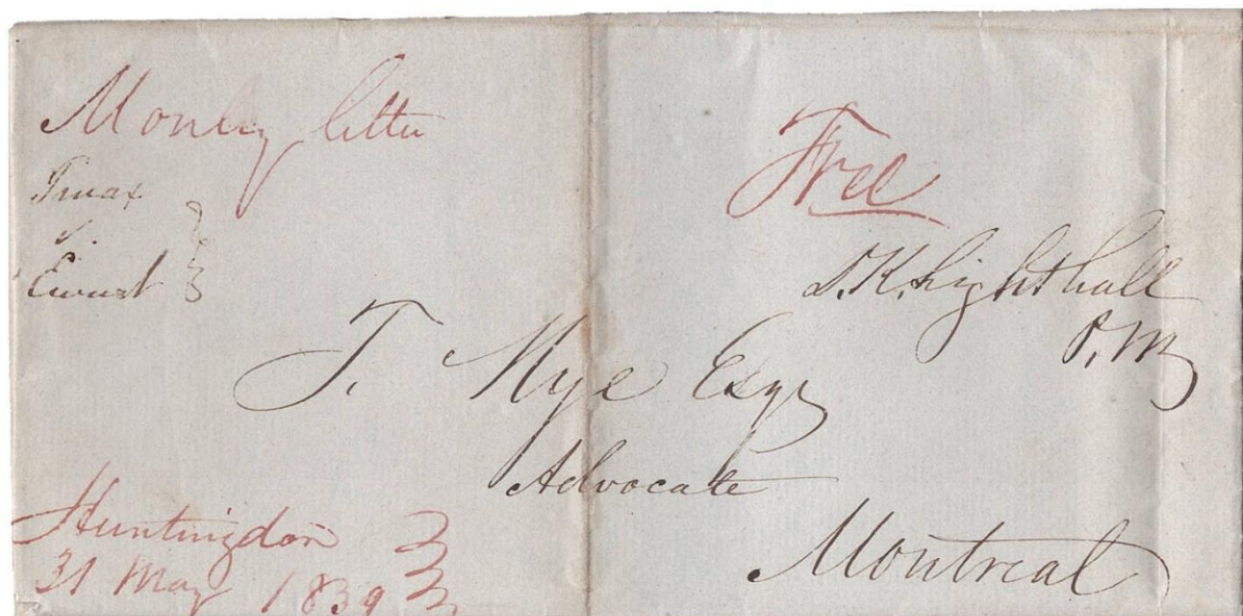 Money letter
Free
v.
Ewart
D.K. Lighthall
P.M
T. Nye Esqr
Advocate
Montreal
Huntingdon
31 May 1839